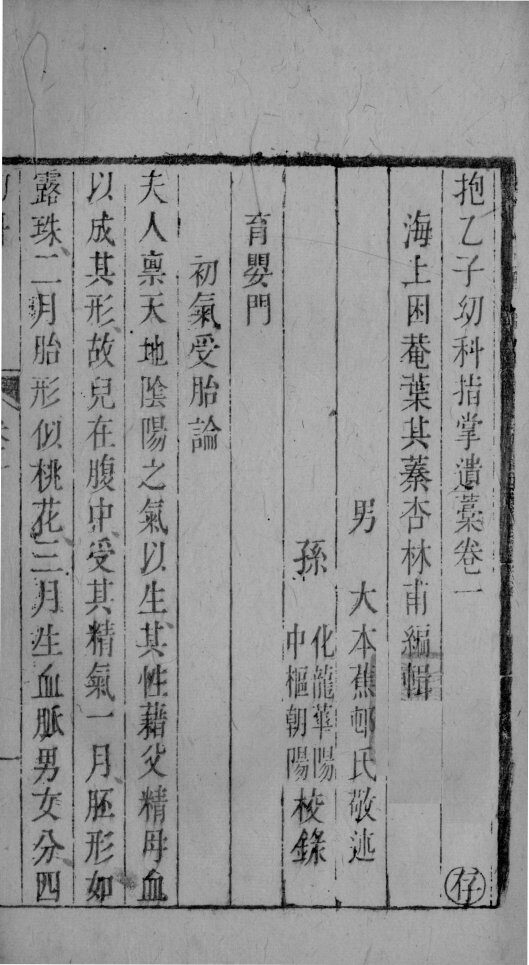 抱乙子幼科指掌遺藁卷一
海上困菴葉其蓁杏林甫編輯
男　大本蕉邨氏敬述
孫　化龍華陽
中樞朝陽　校錄
育嬰門
初氣受胎論
夫人稟天地陰陽之氣以生其性藉父精母血
以成其形故兒在腹中受其精氣一月胚形如
露珠二月胎形似桃花三月生血脈男女分四
存